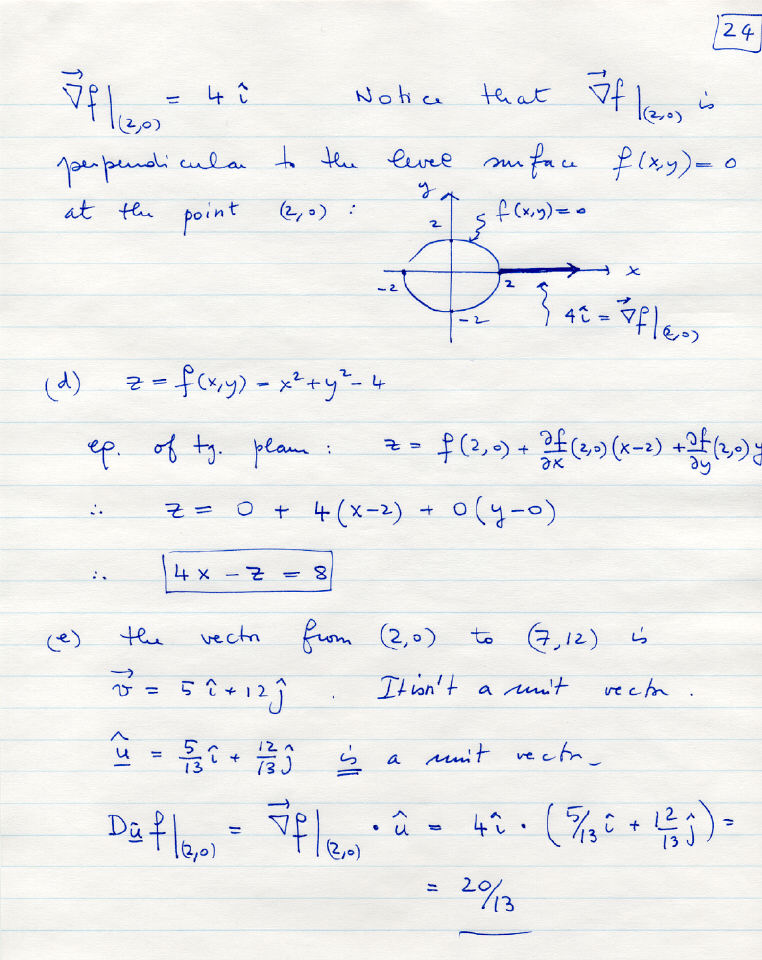 24
∇⃗f|(2,0) = 4 î Notice that ∇⃗f|(2,0) is
perpendicular to the level surface f(x,y)=0
at the point (2,0) :
y
2
f(x,y)=0
-2
2
x
-2
4î = ∇⃗f|(2,0)
(d) z = f(x,y) = x²+y²-4
eq. of tg. plane : z = f(2,0) + ∂f/∂x (2,0)(x-2) + ∂f/∂y (2,0)y
∴ z = 0 + 4(x-2) + 0(y-0)
∴ 4x - z = 8
(e) the vector from (2,0) to (7,12) is
v⃗ = 5 î + 12 ĵ . It isn't a unit vector.
û = 5/13 î + 12/13 ĵ is a unit vector.
Dû f|(2,0) = ∇⃗f|(2,0) · û = 4î · (5/13 î + 12/13 ĵ) =
= 20/13